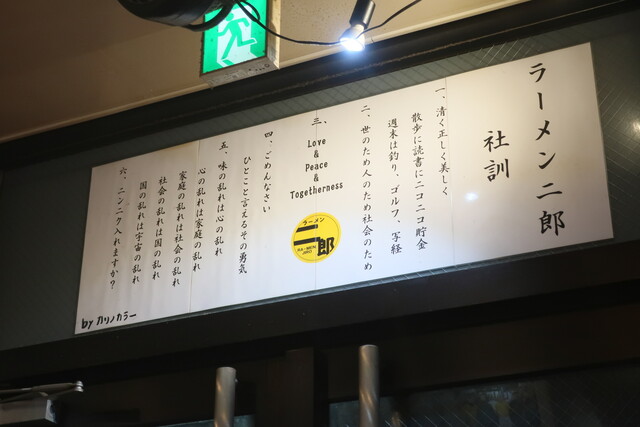 ラーメン二郎
社訓
一、清く正しく美しく
散歩に読書にニコニコ貯金
週末は釣り、ゴルフ、写経
二、世のため人のため社会のため
三、
Love
&
Peace
&
Togetherness
ラーメン
二郎
RA-MEN
JIRO
四、ごめんなさい
ひとこと言えるその勇気
五、味の乱れは心の乱れ
心の乱れは家庭の乱れ
家庭の乱れは社会の乱れ
社会の乱れは国の乱れ
国の乱れは宇宙の乱れ
六、ニンニク入れますか？
by カリノカラー